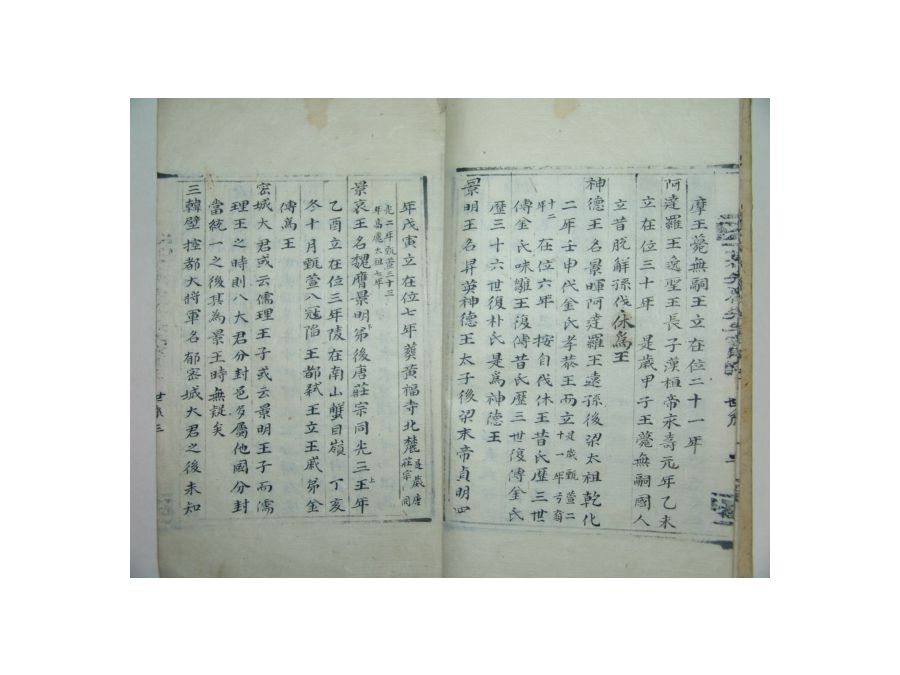 摩王薨無嗣王立在位二十一年
阿達羅王逸聖王長子漢桓帝永壽元年乙未
立在位三十年 是歲甲子王薨無嗣國人
立昔脱解孫伐休爲王
神德王名景暉阿達羅王遠孫後梁太祖乾化
二年壬申代金氏孝恭王而立是歲甄萱二
十一年弓裔
十二
年在位六年 按自伐休王昔氏歷三世
傳金氏味雛王復傳昔氏歷三世復傳金氏
歷三十六世復朴氏是爲神德王
景明王名昇英神德王太子後梁末帝貞明四
年戊寅立在位七年葬黃福寺北麓是歲唐
莊宗同
光二年甄萱三十三
年高麗太祖七年
景哀王名魏膺景明弟後唐莊宗同光三王年
乙酉立在位三年陵在南山蟹目嶺 丁亥
冬十月甄萱入寇陷王都弑王立王戚弟金
傅爲王
密城大君或云儒理王子或云景明王子而儒
理王之時則八大君分封邑多屬他國分封
當統一之後其爲景王時無疑矣
三韓壁控都大將軍名郁密城大君之後未知
世系三